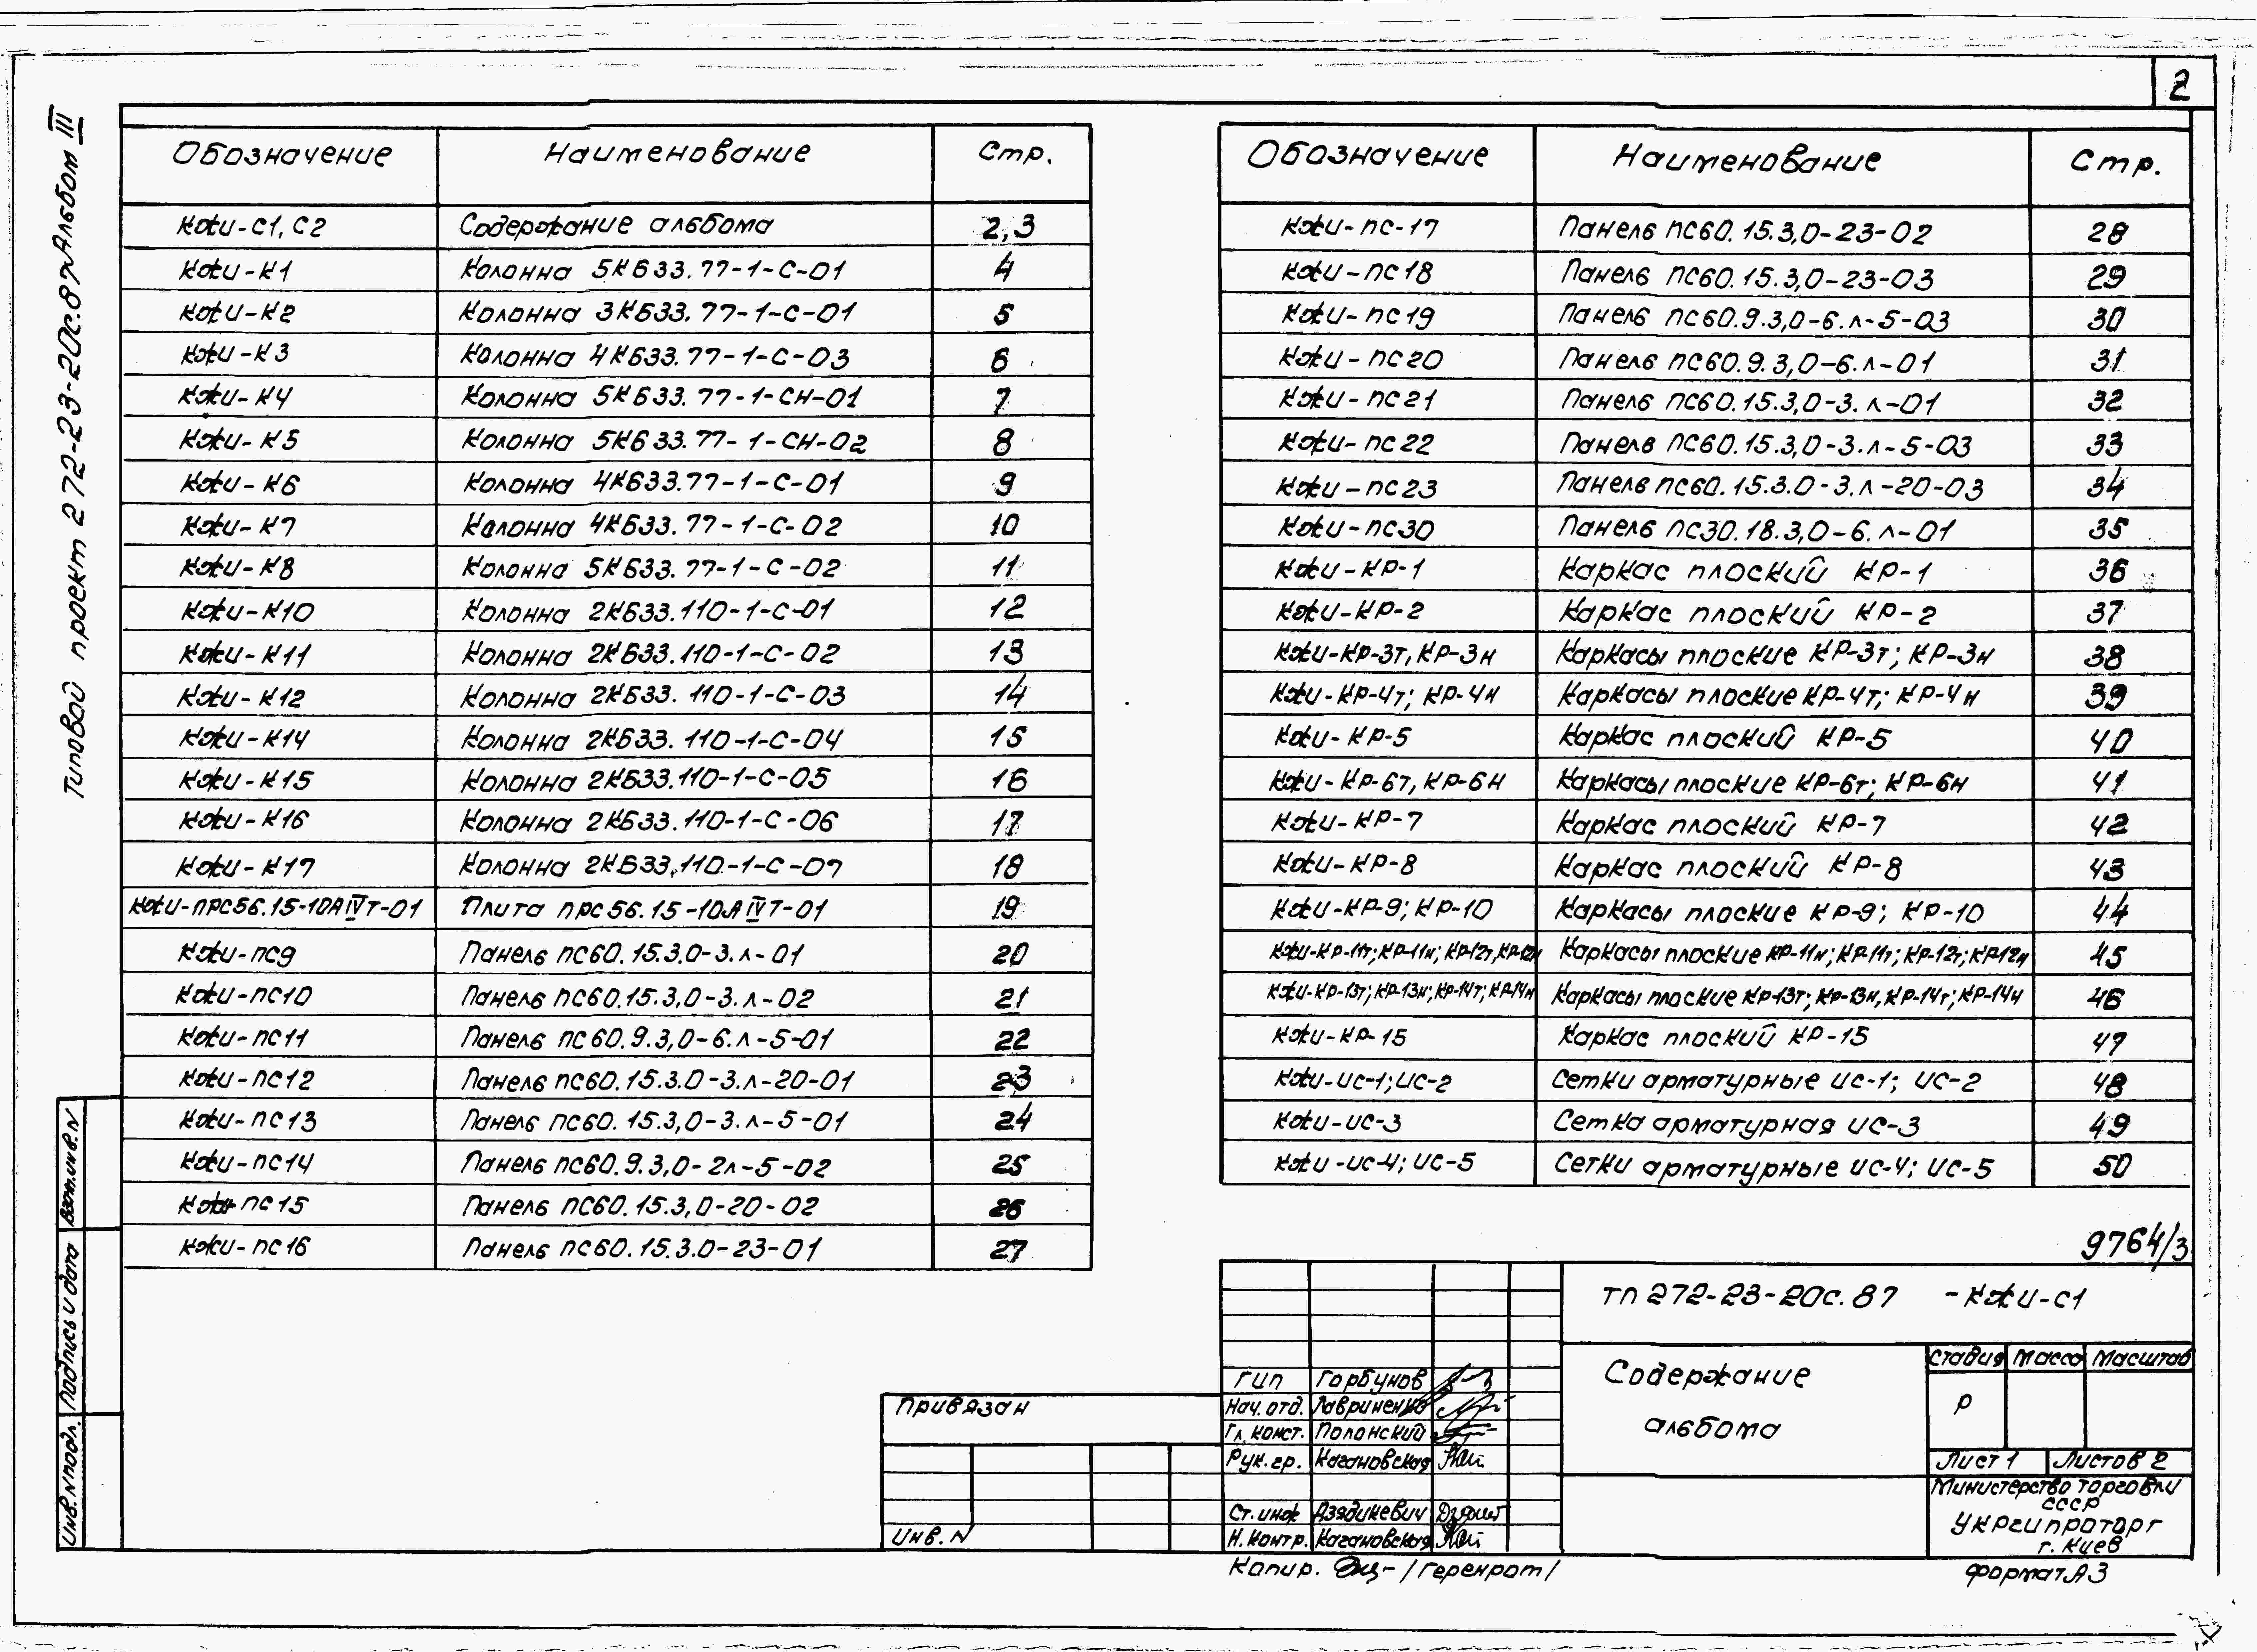 2
Типовой проект 272-23-20с.87 Альбом III
Обозначение Наименование Стр.
КЖИ-С1, С2 Содержание альбома 2,3
КЖИ-К1 Колонна 5КБ33.77-1-С-01 4
КЖИ-К2 Колонна 3КБ33.77-1-С-01 5
КЖИ-К3 Колонна 4КБ33.77-1-С-03 6
КЖИ-К4 Колонна 5КБ33.77-1-СН-01 7
КЖИ-К5 Колонна 5КБ33.77-1-СН-02 8
КЖИ-К6 Колонна 4КБ33.77-1-С-01 9
КЖИ-К7 Колонна 4КБ33.77-1-С-02 10
КЖИ-К8 Колонна 5КБ33.77-1-С-02 11
КЖИ-К10 Колонна 2КБ33.110-1-С-01 12
КЖИ-К11 Колонна 2КБ33.110-1-С-02 13
КЖИ-К12 Колонна 2КБ33.110-1-С-03 14
КЖИ-К14 Колонна 2КБ33.110-1-С-04 15
КЖИ-К15 Колонна 2КБ33.110-1-С-05 16
КЖИ-К16 Колонна 2КБ33.110-1-С-06 17
КЖИ-К17 Колонна 2КБ33.110-1-С-07 18
КЖИ-ПРС56.15-10АIVТ-01 Плита ПРС56.15-10АIVТ-01 19
КЖИ-ПС9 Панель ПС60.15.3.0-3.Л-01 20
КЖИ-ПС10 Панель ПС60.15.3,0-3.Л-02 21
КЖИ-ПС11 Панель ПС60.9.3,0-6.Л-5-01 22
КЖИ-ПС12 Панель ПС60.15.3.0-3.Л-20-01 23
КЖИ-ПС13 Панель ПС60.15.3,0-3.Л-5-01 24
КЖИ-ПС14 Панель ПС60.9.3,0-2Л-5-02 25
КЖИ-ПС15 Панель ПС60.15.3,0-20-02 26
КЖИ-ПС16 Панель ПС60.15.3.0-23-01 27
Обозначение Наименование Стр.
КЖИ-ПС-17 Панель ПС60.15.3,0-23-02 28
КЖИ-ПС18 Панель ПС60.15.3,0-23-03 29
КЖИ-ПС19 Панель ПС60.9.3,0-6.Л-5-03 30
КЖИ-ПС20 Панель ПС60.9.3,0-6.Л-01 31
КЖИ-ПС21 Панель ПС60.15.3,0-3.Л-01 32
КЖИ-ПС22 Панель ПС60.15.3,0-3.Л-5-03 33
КЖИ-ПС23 Панель ПС60.15.3.0-3.Л-20-03 34
КЖИ-ПС30 Панель ПС30.18.3,0-6.Л-01 35
КЖИ-КР-1 Каркас плоский КР-1 36
КЖИ-КР-2 Каркас плоский КР-2 37
КЖИ-КР-3т, КР-3н Каркасы плоские КР-3т; КР-3н 38
КЖИ-КР-4т; КР-4н Каркасы плоские КР-4т; КР-4н 39
КЖИ-КР-5 Каркас плоский КР-5 40
КЖИ-КР-6т, КР-6н Каркасы плоские КР-6т; КР-6н 41
КЖИ-КР-7 Каркас плоский КР-7 42
КЖИ-КР-8 Каркас плоский КР-8 43
КЖИ-КР-9; КР-10 Каркасы плоские КР-9; КР-10 44
КЖИ-КР-11т; КР-11н; КР-12т, КР-12н Каркасы плоские КР-11н; КР-11т; КР-12т; КР-12н 45
КЖИ-КР-13т; КР-13н; КР-14т; КР-14н Каркасы плоские КР-13т; КР-13н, КР-14т; КР-14н 46
КЖИ-КР-15 Каркас плоский КР-15 47
КЖИ-ИС-1; ИС-2 Сетки арматурные ИС-1; ИС-2 48
КЖИ-ИС-3 Сетка арматурная ИС-3 49
КЖИ-ИС-4; ИС-5 Сетки арматурные ИС-4; ИС-5 50
9764/3
ТП 272-23-20с.87 -КЖИ-С1
Содержание
альбома
Стадия Масса Масштаб
Р
Лист 1 Листов 2
Министерство торговли
СССР
Укргипроторг
г. Киев
ГИП Горбунов
Нач. отд. Лавриненко
Гл. конст. Полонский
Рук. гр. Кагановская
Ст. инж Дзядикевич
Н. контр. Кагановская
Привязан
Инв. N
Взам. инв. N
Подпись и дата
Инв. N подл.
Копир. /Геренрот/
Формат А3